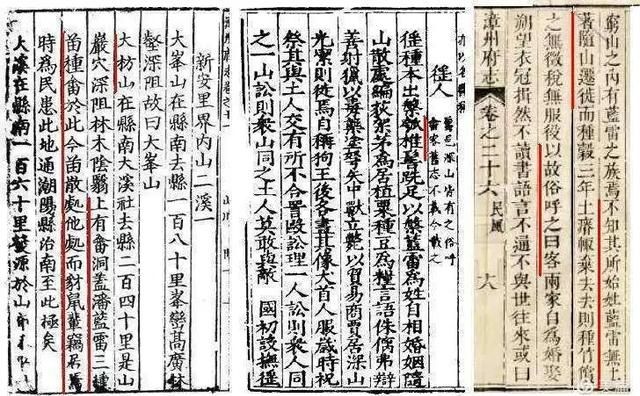 窮山之內有藍雷之族焉不知其所始姓藍雷無土
著隨山遷徙而種穀三年土瘠輒棄去去則種竹償
之無徵稅無服役以故俗呼之曰客兩家自為婚娶
朔望衣冠揖然不讀書語言不通不與世往來或曰
漳州府志 卷之二十六 民風 六
徭人 邑深山皆有之俗呼
畬客舊志不載今載之
徭種本出槃瓠椎髻跣足以槃藍雷為姓自相婚姻隨
山散處編荻架茅為居植粟種豆為糧言語侏㑦弗辨
善射獵以毒藥塗弩矢中獸立斃以貿易商賈居深山
光潔則徙焉自稱狗王後各畫其像犬首人服歲時祝
祭其與土人交有所不合詈毆訟理一人訟則衆人同
之一山訟則衆山同之土人莫敢與敵 國初設撫徭
新安里界內山二溪一
大峯山在縣南去縣一百八十里峯巒高廣林
壑深阻故曰大峯山
大枋山在縣南大溪社去縣二百四十里是山
巖穴深阻林木陰翳上有畬洞蓋潘藍雷三種
苗種畬於此今苗散處他處而豺鼠輩竊居焉
時為民患此地通潮陽縣治南至此極矣
大溪在縣南一百六十里發源於山